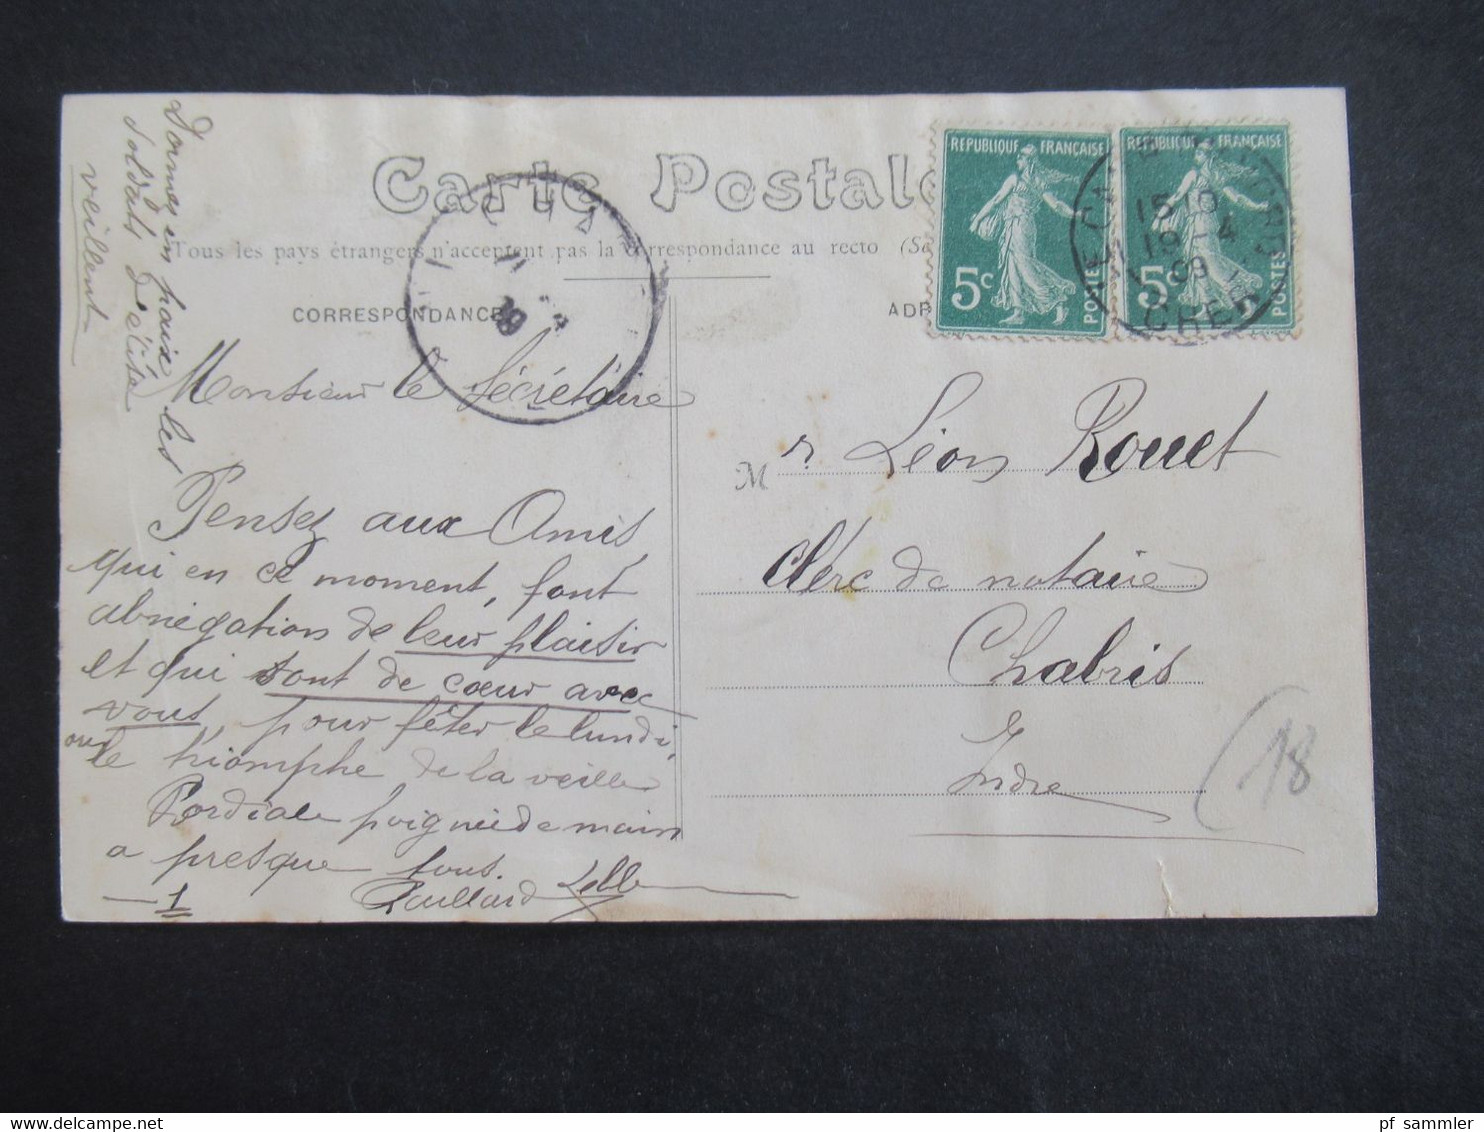 Carte Postale
Tous les pays étrangers n'acceptent pas la correspondance au recto (Se
CORRESPONDANCE
ADR
REPUBLIQUE FRANÇAISE
5c
POSTES
REPUBLIQUE FRANÇAISE
5c
POSTES
15 10
19 - 4
09
CHER
Dormez en paix les
soldats d'élite
veillent
Monsieur le Sécrétaire
Pensez aux Amis
qui en ce moment, font
abnégation de leur plaisir
et qui sont de cœur avec
vous, pour fêter le lundi,
le triomphe de la veille
Cordiale poignée de main
a presque tous.
1
M r Léon Rouet
Clerc de notaire
Chabris
Indre
(18
www.delcampe.net
pf_sammler